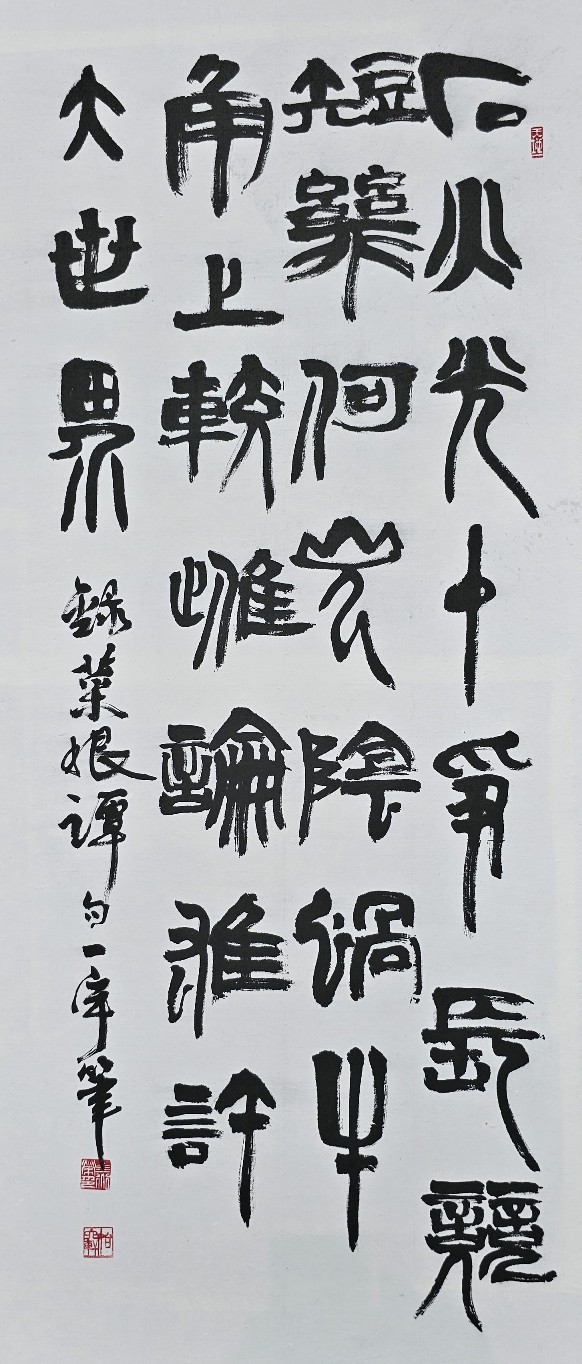 石火光中爭長競
短幾何光陰蝸牛
角上較雌論雄許
大世界 錄菜根譚句一筆